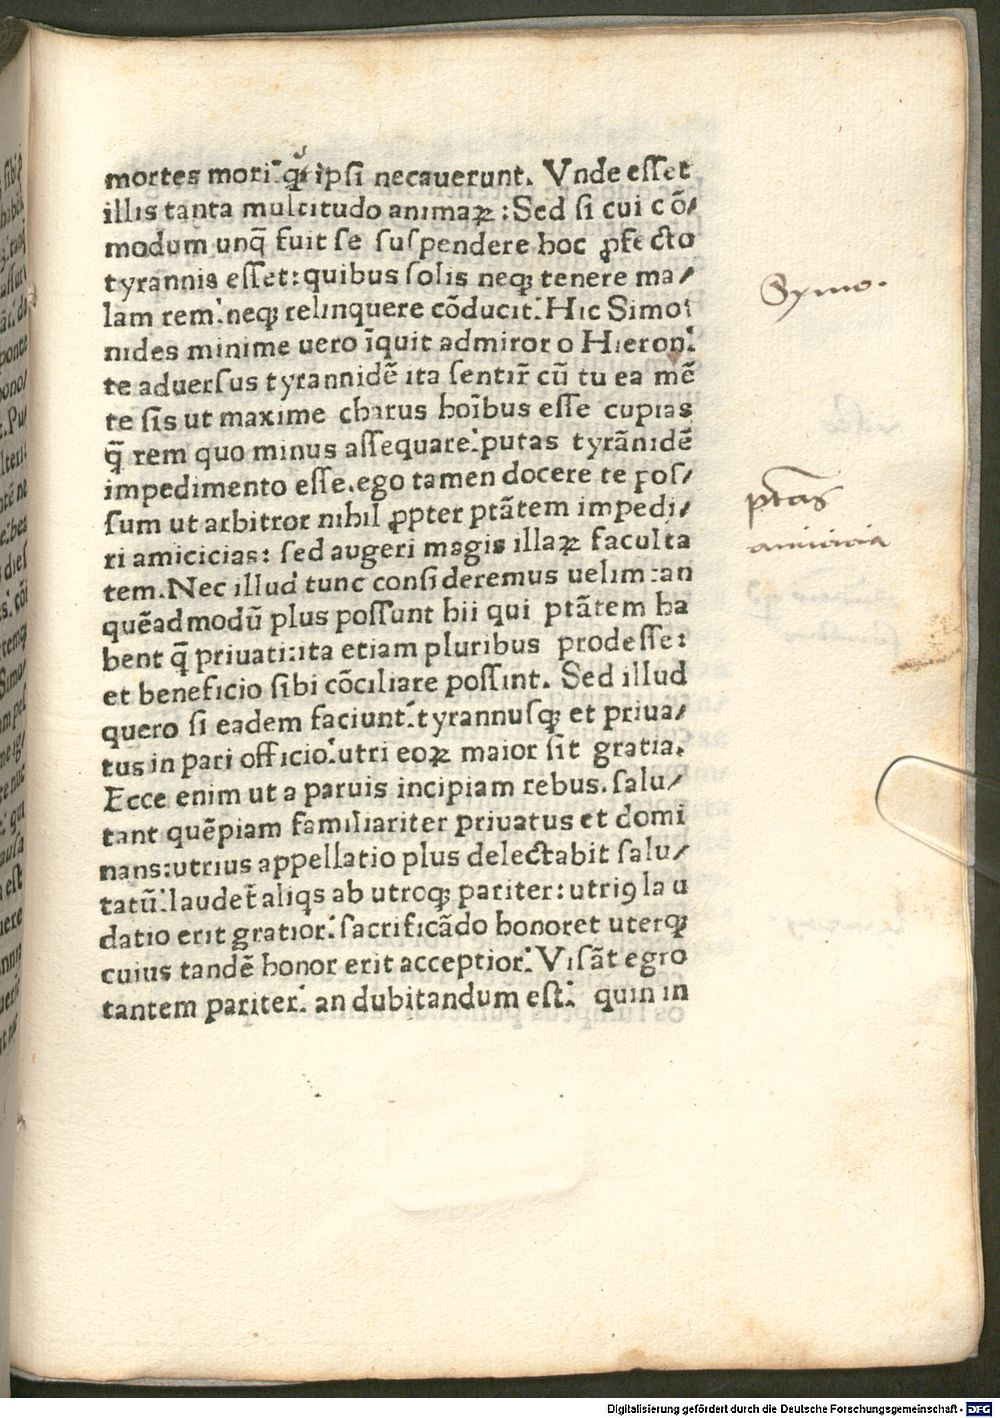 mortes mori: ꝙ̃ ipsi necauerunt. Vnde esset
illis tanta multitudo animaꝝ: Sed si cui cõ/
modum unq̃ fuit se suspendere hoc ꝓfecto
tyrannis esset: quibus solis neqꝫ tenere ma/
lam rem: neqꝫ relinquere cõducit: Hic Simo:
nides minime uero ĩquit admiror o Hieron:
te aduersus tyrannidẽ ita sentir̃ cũ tu ea mẽ
te sis ut maxime charus hoĩbus esse cupias
q̃ rem quo minus assequare: putas tyrãnidẽ
impedimento esse. ego tamen docere te pos/
sum ut arbitror nihil ꝓpter ptãtem impedi/
ri amicicias: sed augeri magis illaꝝ faculta
tem. Nec illud tunc consideremus uelim: an
quẽadmodũ plus possunt hii qui ptãtem ha
bent q̃ priuati: ita etiam pluribus prodesse:
et beneficio sibi cõciliare possint. Sed illud
quero si eadem faciunt: tyrannusqꝫ et priua/
tus in pari officio: utri eoꝝ maior sit gratia.
Ecce enim ut a paruis incipiam rebus. salu/
tant quẽpiam familiariter priuatus et domi
nans: utrius appellatio plus delectabit salu/
tatũ: laudet̃ aliqs ab utroqꝫ pariter: utriꝰ lau
datio erit gratior: sacrificãdo honoret uterqꝫ
cuius tandẽ honor erit acceptior: Visãt egro
tantem pariter: an dubitandum est: quin in
Symo.
ptas
amicicia
Digitalisierung gefördert durch die Deutsche Forschungsgemeinschaft - DFG